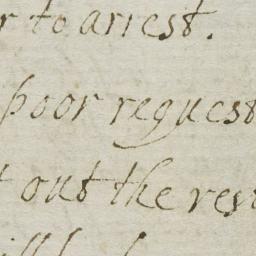 r to arrest.
poor request
t out the res